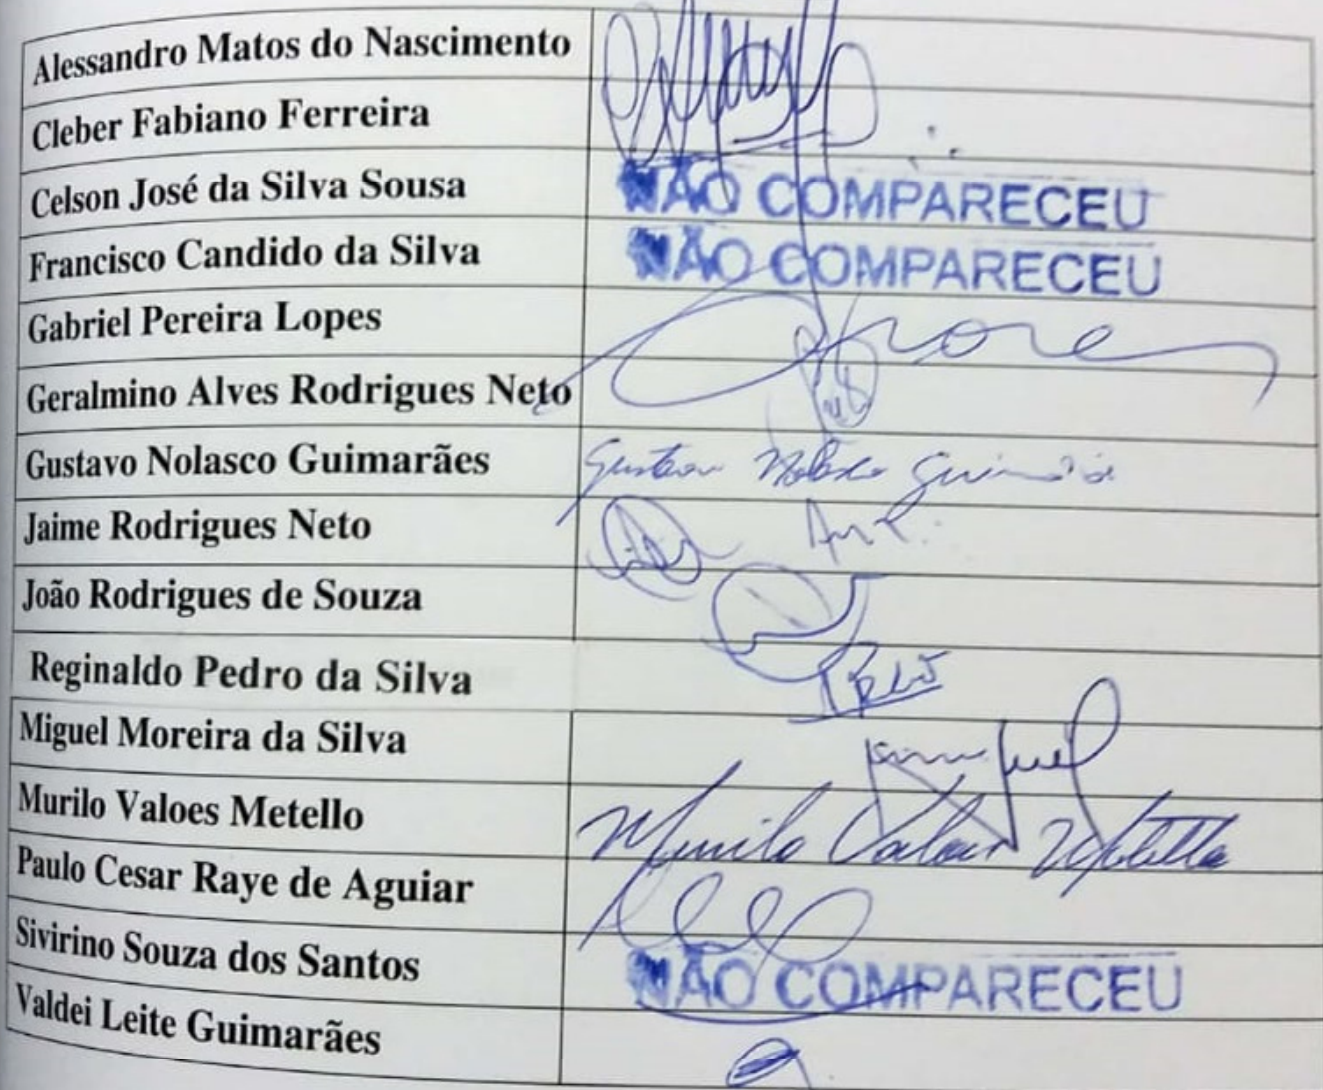 Alessandro Matos do Nascimento
Cleber Fabiano Ferreira
Celson José da Silva Sousa NÃO COMPARECEU
Francisco Candido da Silva NÃO COMPARECEU
Gabriel Pereira Lopes
Geralmino Alves Rodrigues Neto
Gustavo Nolasco Guimarães Gustavo Nolasco Guimarães
Jaime Rodrigues Neto
João Rodrigues de Souza
Reginaldo Pedro da Silva
Miguel Moreira da Silva
Murilo Valoes Metello Murilo Valoes Metello
Paulo Cesar Raye de Aguiar
Sivirino Souza dos Santos NÃO COMPARECEU
Valdei Leite Guimarães